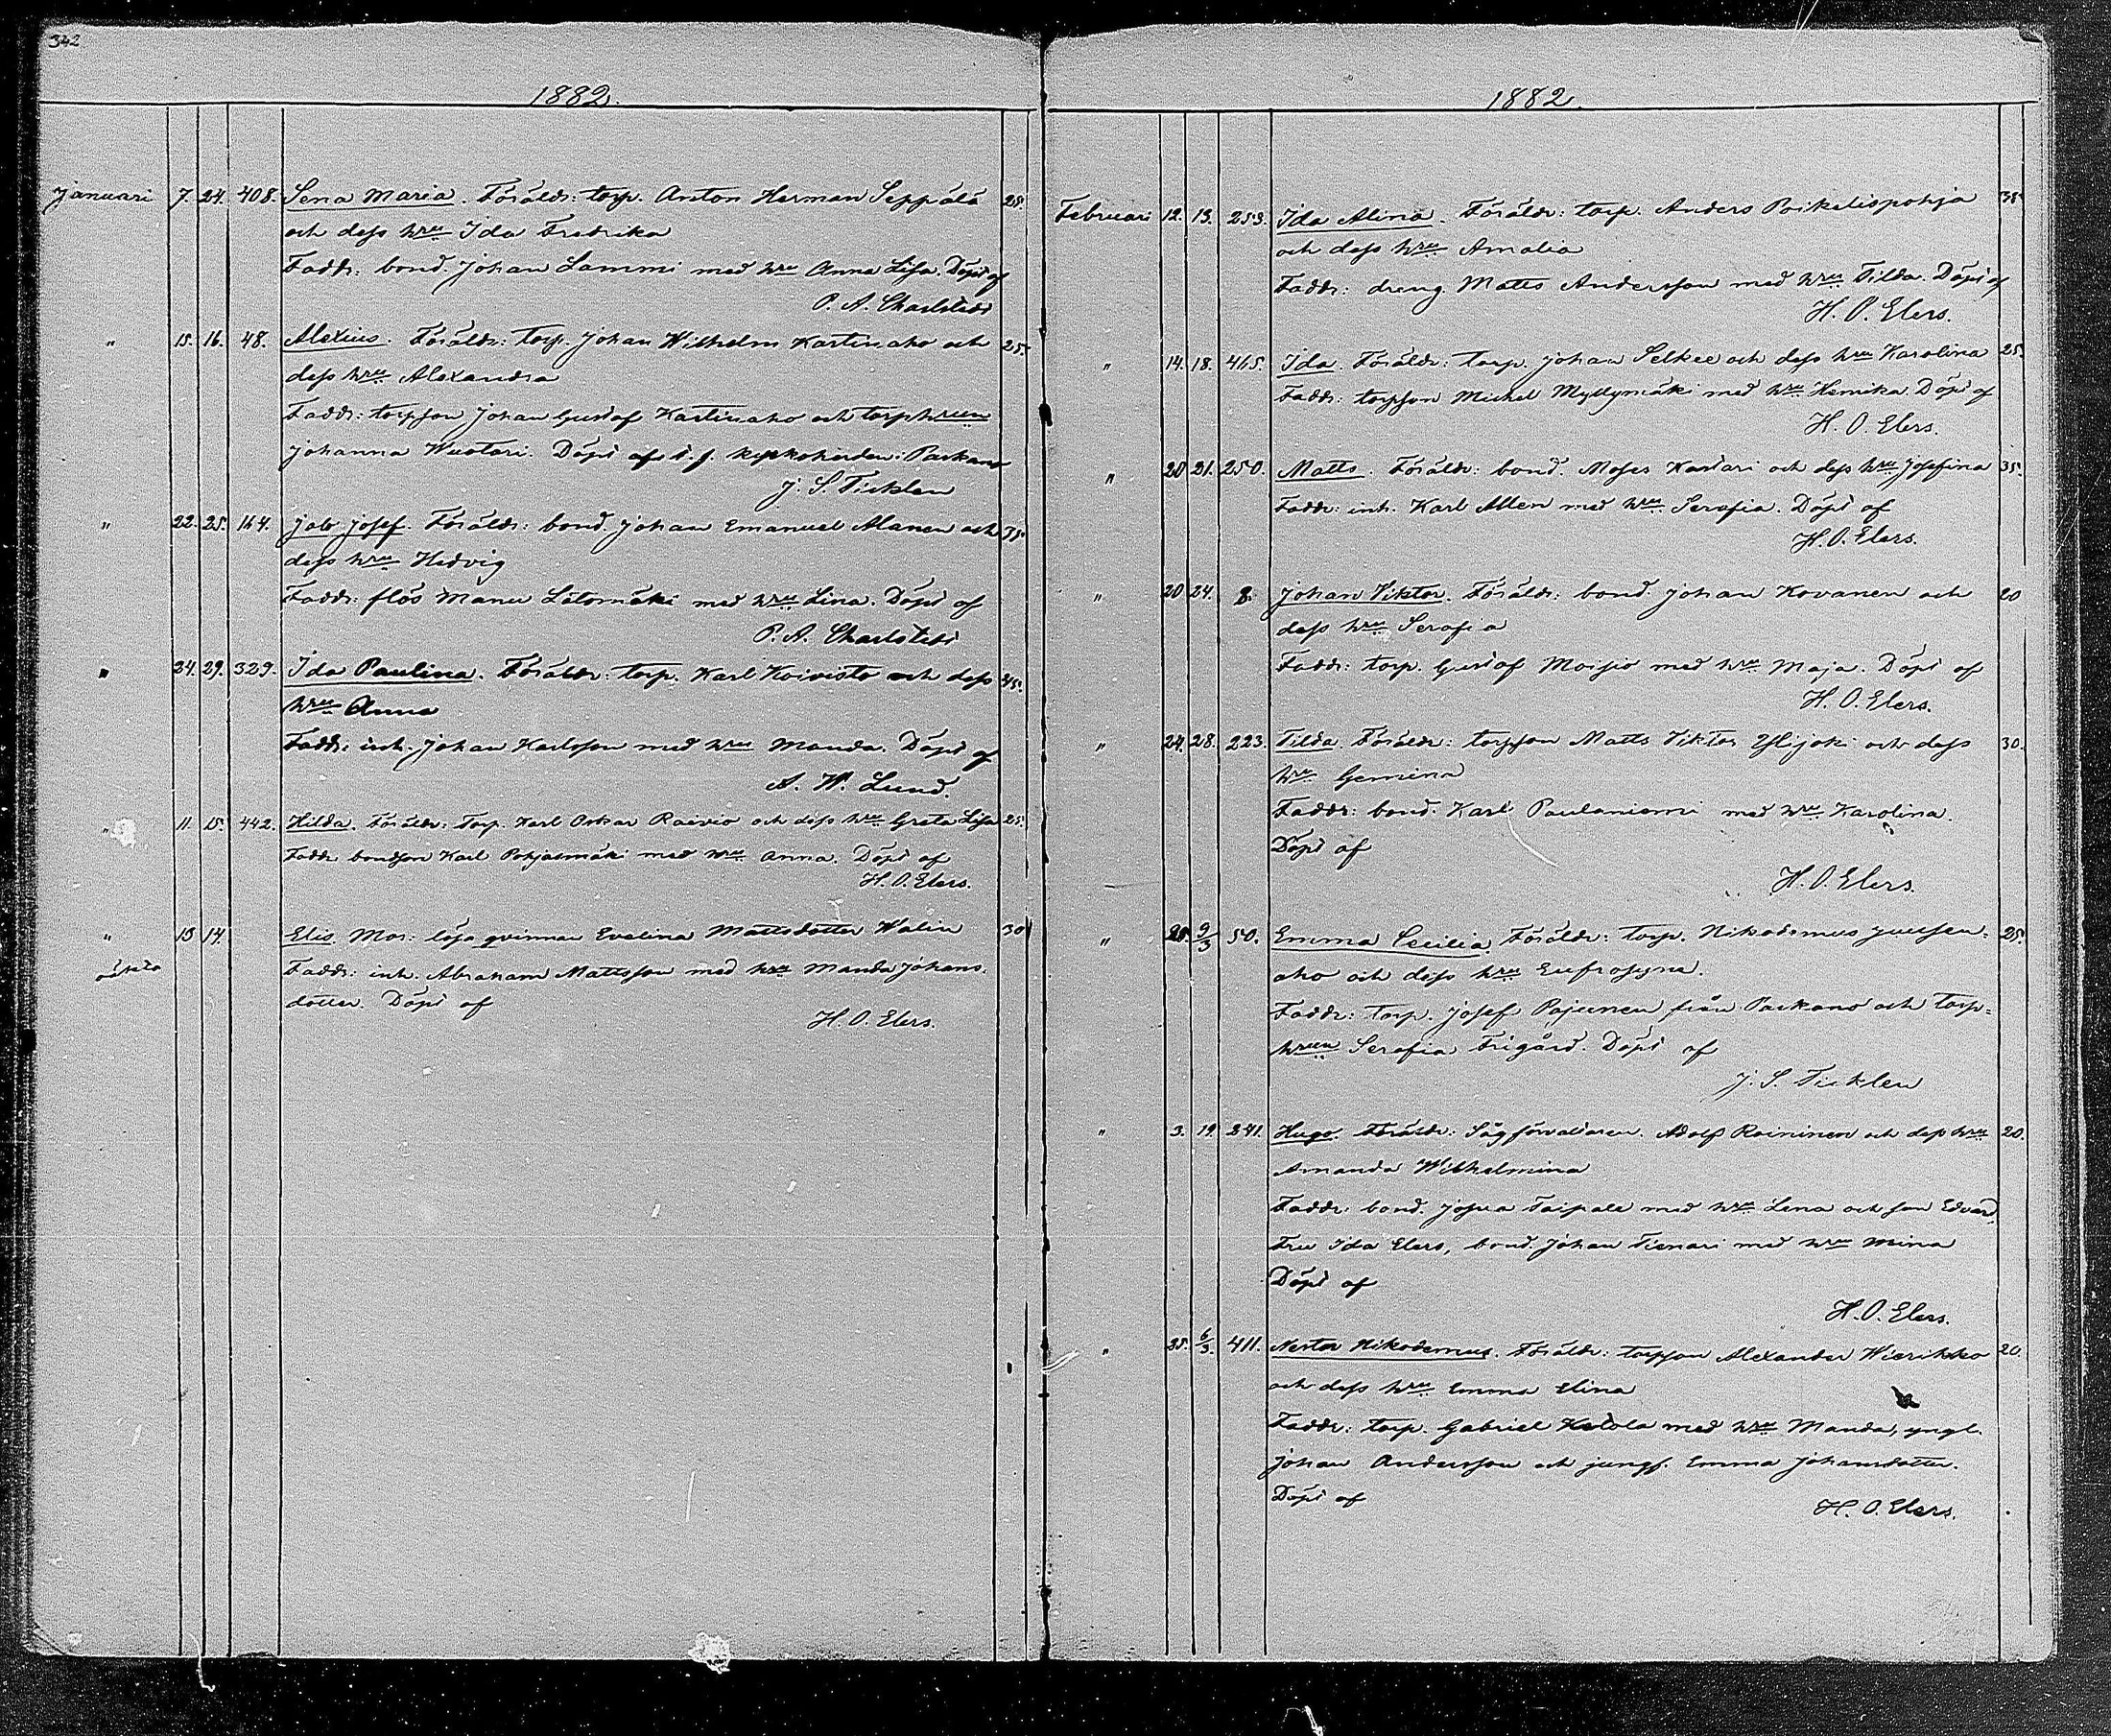 342
1882.
Januari 7. 24. 408. Sena Maria. Föräldr: torp. Anton Herman Seppälä 25.
och dess hru Ida Fredrika
Faddr: bond. Johan Lammi med hru Anna Lisa. Döpt af
P. A. Charlstedt
" 15. 16. 48. Alexius. Föräldr: torp. Johan Wilhelm Kartinaho och 25.
dess hru Alexandra
Faddr: torpson Johan Gustaf Kartinaho och torphrun
Johanna Wuotari. Döpt af i Parkano
J. S. Ticklen
" 22. 25. 164. Job Josef. Föräldr: bond. Johan Emanuel Alanen och 35.
dess hru Hedvig
Faddr: Manu Lötsmäki med hru Lina. Döpt af
P. A. Charlstedt
" 24. 29. 329. Ida Paulina. Föräldr: torp. Karl Koivisto och dess 45.
hru Anna
Faddr: inh. Johan Karlsson med hru Manda. Döpt af
A. W. Lund.
" 11. 15. 442. Hilda. Föräldr: Torp. Karl Oskar Raivio och dess hru Greta Lisa 25.
Faddr bondson Karl Pohjasmäki med hru Anna. Döpt af
H. O. Elers.
" 13 14. Elis. Mor: lösa qvinnan Evelina Mattsdotter Walin 30
oäkta Faddr: inh. Abraham Mattsson med hru Manda Johans-
dotter. Döpt af
H. O. Elers.
1882.
Februari 12. 13. 253. Ida Alina. Föräldr: torp. Anders Poikelispohja 35
och dess hru Amalia
Faddr: dreng. Matts Andersson med hru Tilda. Döpt af
H. O. Elers.
" 14. 18. 415. Ida. Föräldr: torp. Johan Selkee och dess hru Karolina 25.
Faddr: torpson Michel Myllymäki med hru Henrika. Döpt af
H. O. Elers.
" 20 21. 250. Matts. Föräldr: bond. Moses Kartari och dess hru Josefina 35.
Faddr: inh. Karl Allen med hru Serafia. Döpt af
H. O. Elers.
" 20 24. 8. Johan Viktor. Föräldr: bond. Johan Kovanen och 20
dess hru Serafia
Faddr: torp. Gustaf Moisio med hru Maja. Döpt af
H. O. Elers.
" 24. 28. 223. Tilda. Föräldr: torpson Matts Viktor Ylijoki och dess 30.
hru Gemina
Faddr: bond. Karl Paulaniemi med hru Karolina.
Döpt af
H. O. Elers.
" 9/3 50. Emma Cecilia. Föräldr: torp. Nikodemus Juusen- 25.
aho och dess hru Eufrosyna.
Faddr: torp. Josef Pajunen från Parkano och torp-
hrun Serafia Frigård. Döpt af
J. S. Ticklen
" 3. 19. 241. Hugo. Föräldr: Sågförvaltaren. Adolf Roininen och dess hru 20.
Amanda Wilhelmina
Faddr: bond. Josua Taipale med hru Lena och son Edvard,
Fru Ida Elers, bond. Johan Tienari med hru Mina
Döpt af
H. O. Elers.
" 25. 6/3. 411. Nestor Nikodemus. Föräldr: torpson Alexander Wierikko 20.
och dess hru Emma Elina
Faddr: torp. Gabriel Ketola med hru Manda, yngl.
Johan Andersson och jungf. Emma Johansdotter.
Döpt af
H. O. Elers.